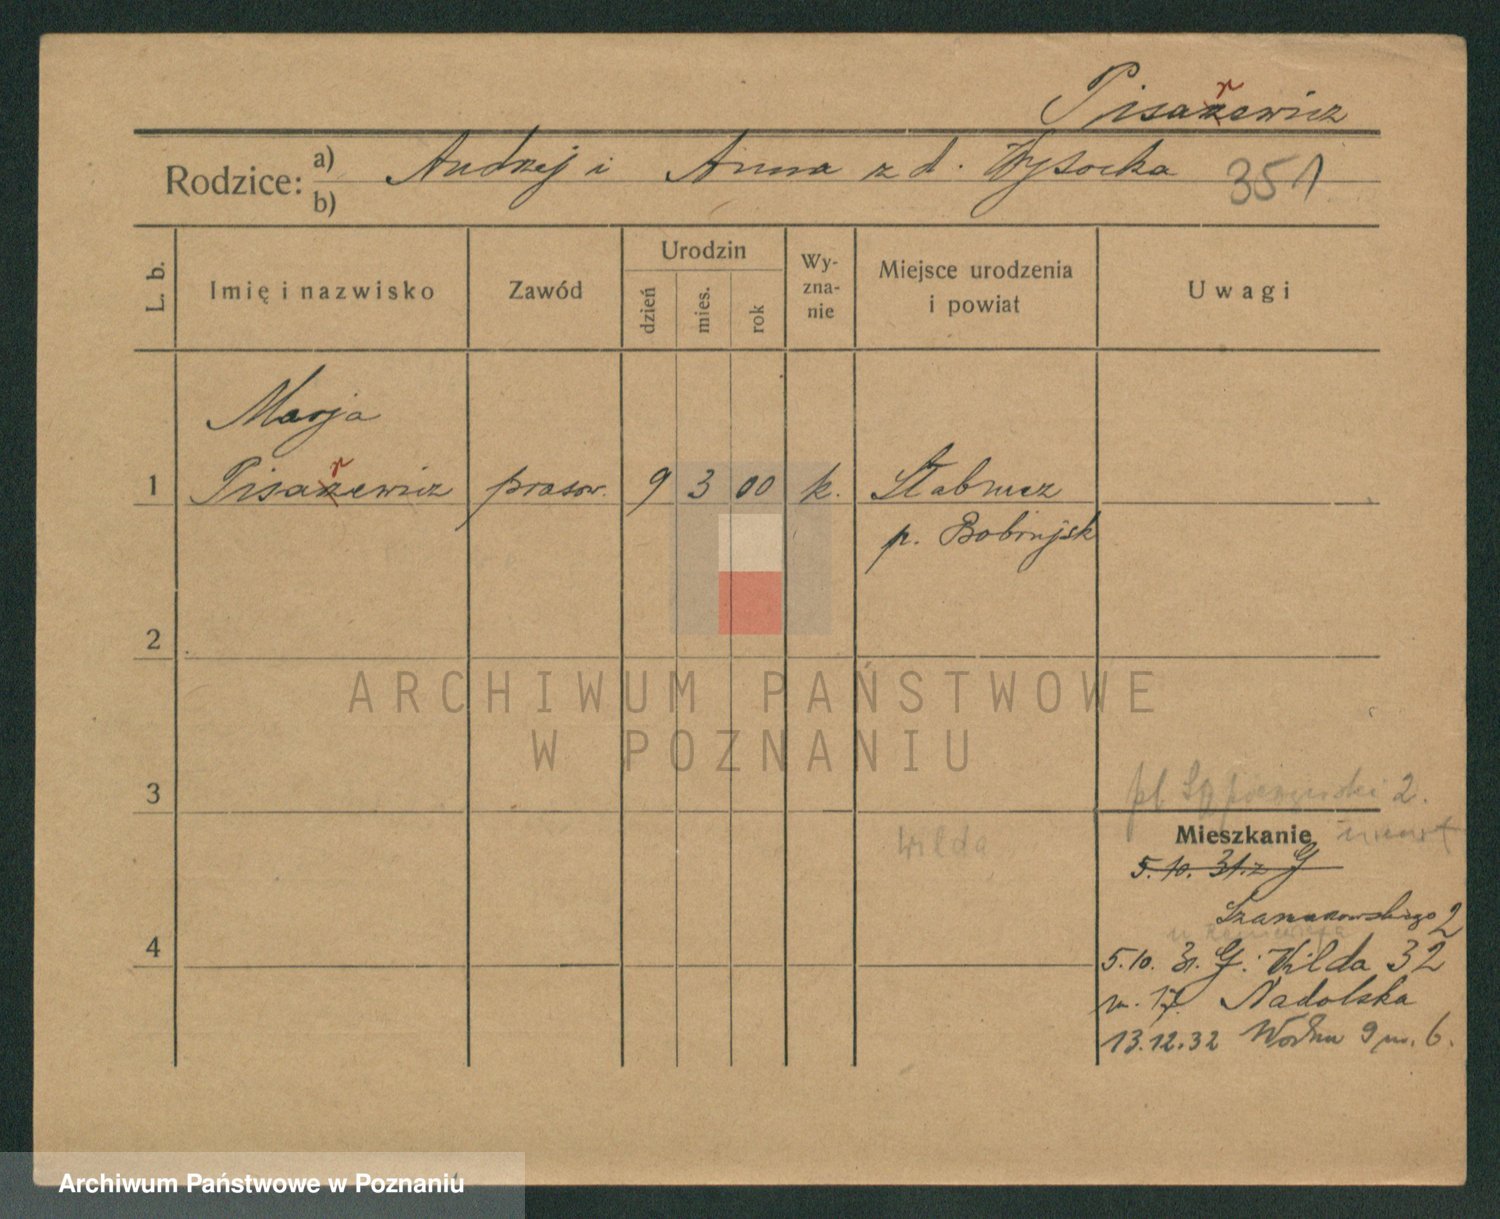 Pisarewicz
Rodzice: a) Andrzej i Anna z d. Wysocka 351
b)
L. b. Imię i nazwisko Zawód Urodzin dzień mies. rok Wy-zna-nie Miejsce urodzenia i powiat Uwagi
Marja
1 Pisarewicz prasow. 9 3 00 k.
p. Bobrujsk
2
ARCHIWUM PAŃSTWOWE
W POZNANIU
3
2.
Wilda
Mieszkanie
5.10.31. z G
Szamarzewskiego 2
4
5.10.31. G. Wilda 32
m. 17. Nadolska
13.12.32 Wodna 9 m. 6.
Archiwum Państwowe w Poznaniu